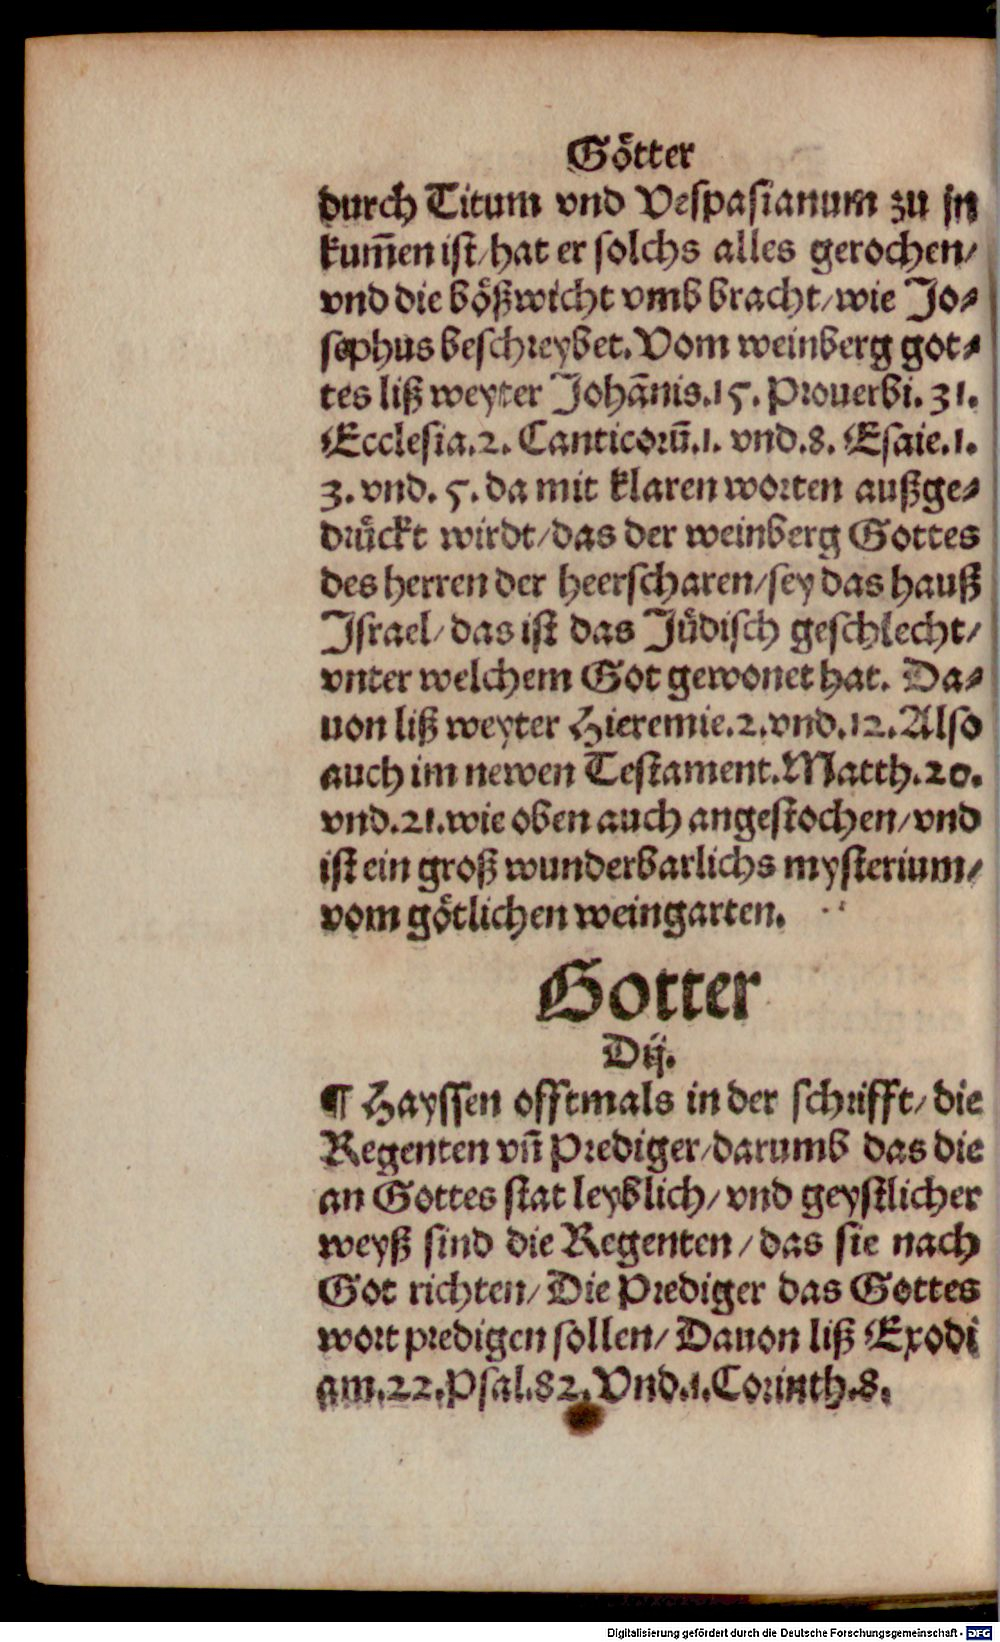 Goͤtter
durch Titum vnd Veſpaſianum zu jn
kum̄en iſt/hat er ſolchs alles gerochen/
vnd die boͤßwicht vmb bracht/wie Jo⸗
ſephus beſchreybet. Vom weinberg got⸗
tes liß weyter Johān̄is.15. Prouerbi. 31.
Eccleſia.2. Canticorū.1. vnd.8. Eſaie.1.
3. vnd. 5. da mit klaren worten außge⸗
druͤckt wirdt/das der weinberg Gottes
des herren der heerſcharen/ſey das hauß
Jſrael/das iſt das Juͤdiſch geſchlecht/
vnter welchem Got gewonet hat. Da⸗
uon liß weyter Hieremie.2.vnd.12.Alſo
auch im newen Teſtament.Matth.20.
vnd.21.wie oben auch angeſtochen/vnd
iſt ein groß wunderbarlichs myſterium/
vom goͤtlichen weingarten.
Gotter
Dij.
¶ Hayſſen offtmals in der ſchrifft/die
Regenten vn̄ Prediger/darumb das die
an Gottes ſtat leyblich/vnd geyſtlicher
weyß ſind die Regenten/das ſie nach
Got richten/Die Prediger das Gottes
wort predigen ſollen/Dauon liß Exodi
am.22.Pſal.82.Vnd.1.Corinth.8.
Digitalisierung gefördert durch die Deutsche Forschungsgemeinschaft - DFG